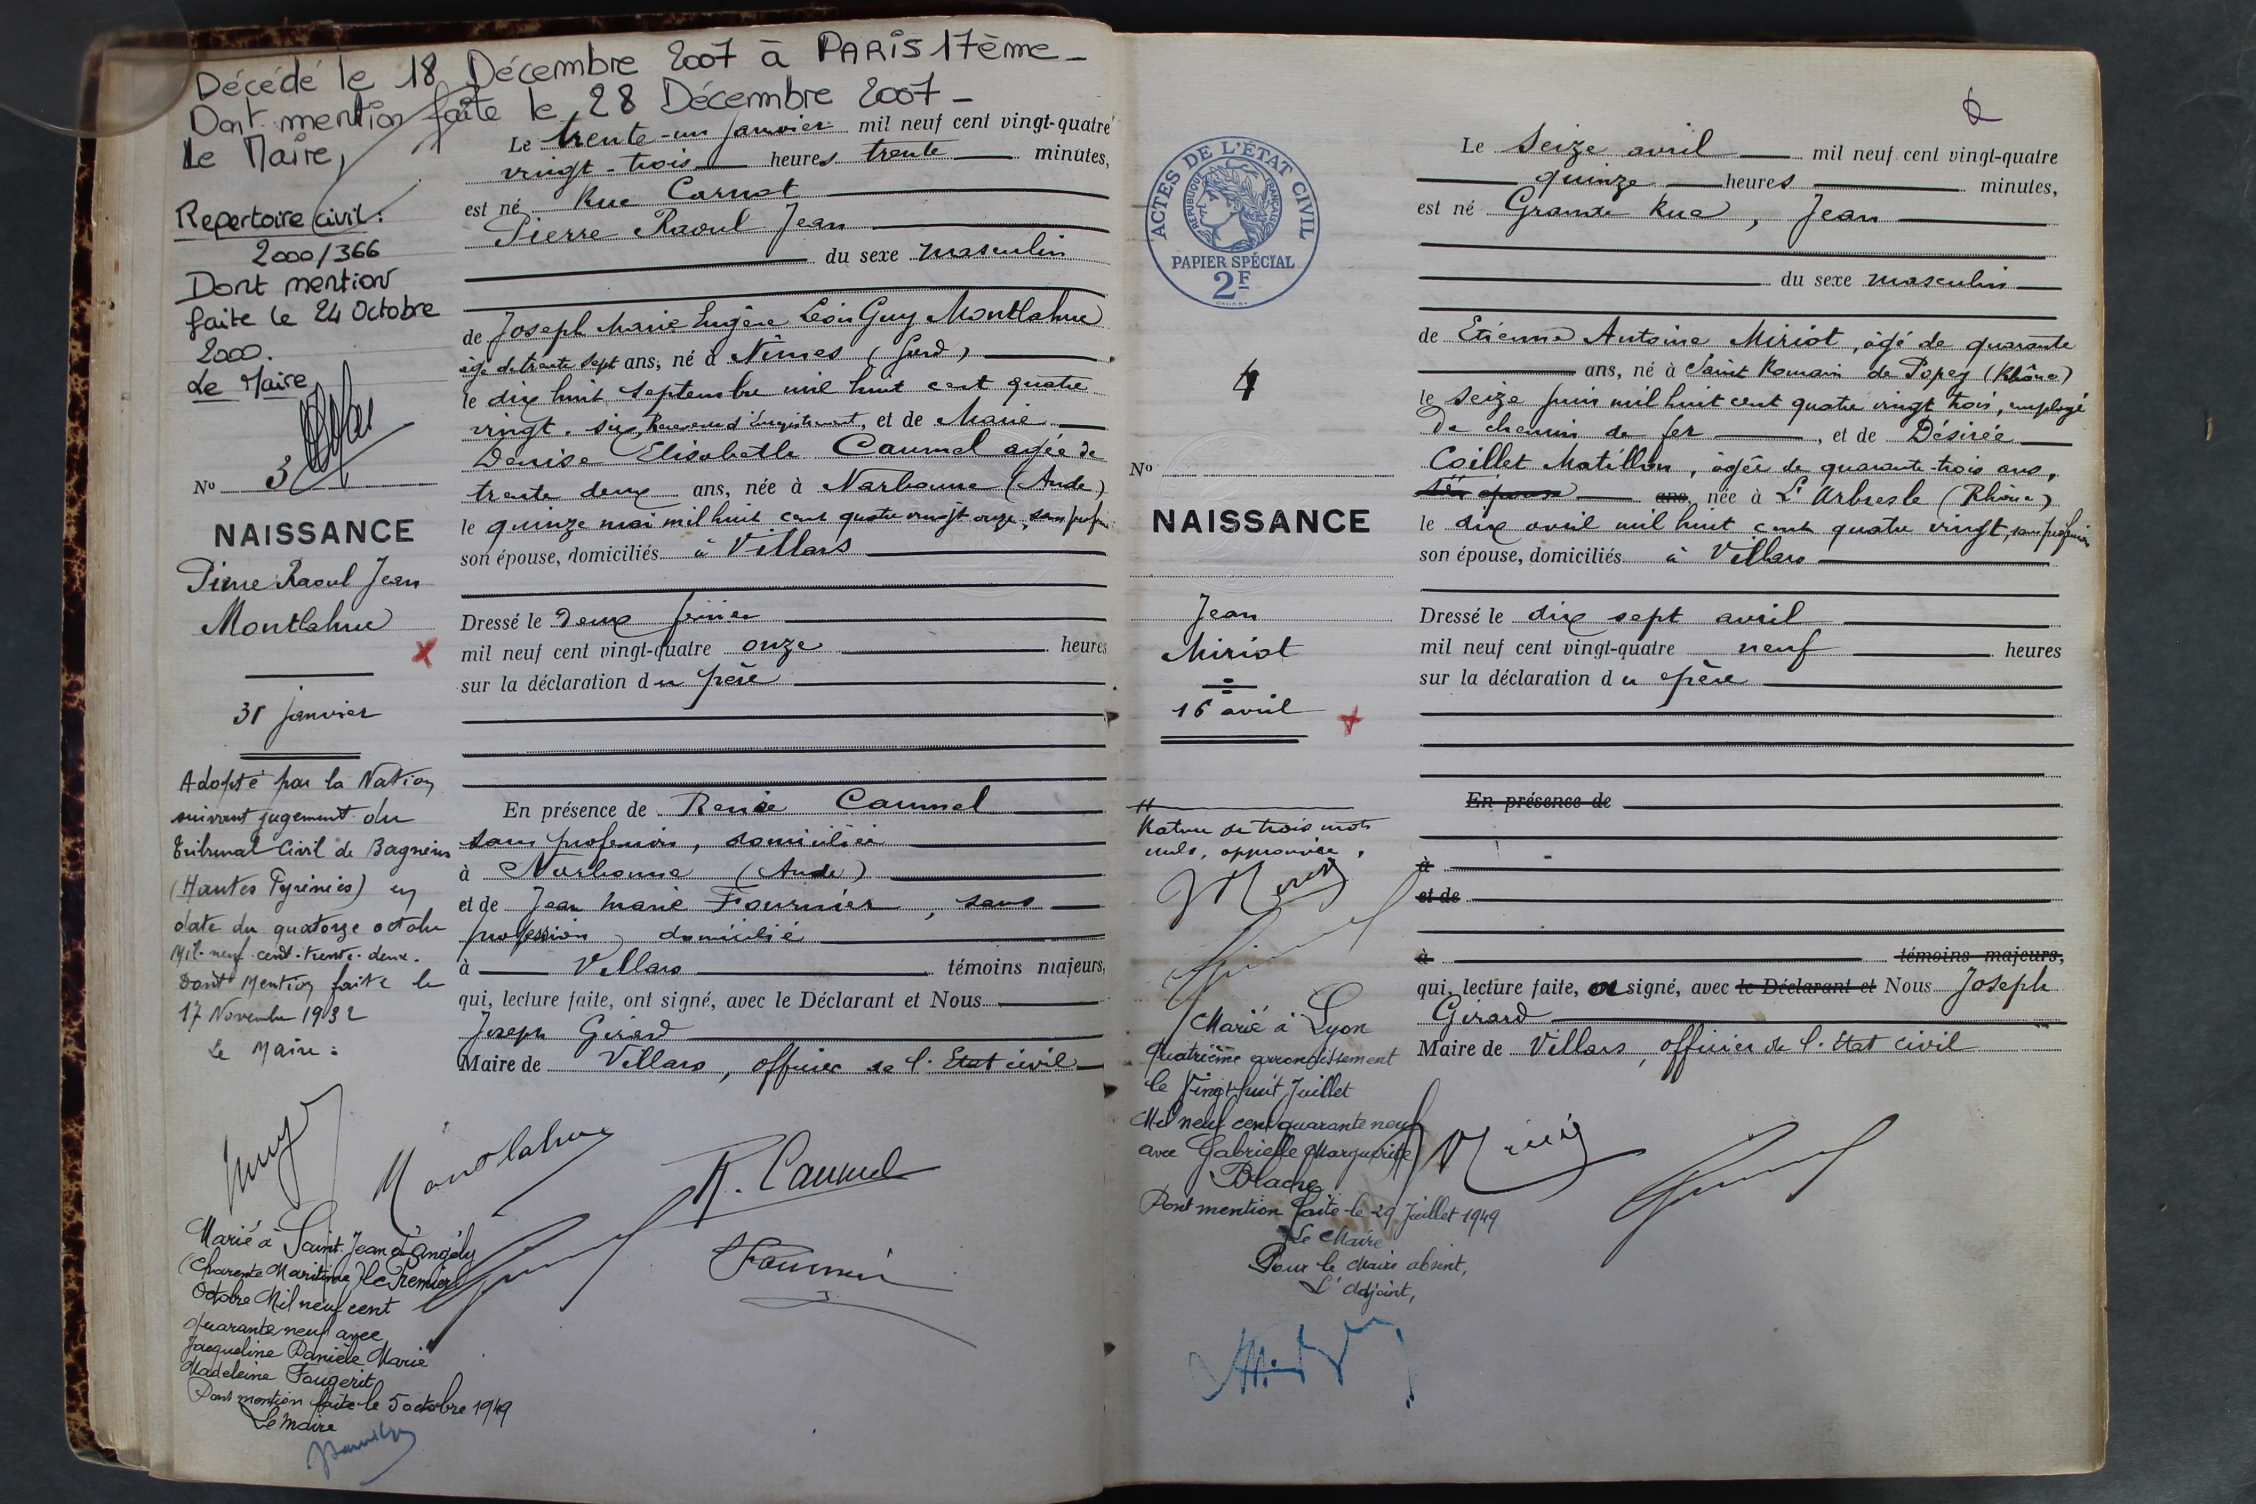 Décédé le 18 Décembre 2007 à PARIS 17ème -
Dont mention faite le 28 Décembre 2007 -
Le Maire,
Repertoire civil :
2000/366
Dont mention
faite le 24 Octobre
2000.
Le Maire
No 3
NAISSANCE
Pierre Raoul Jean
Montlahuc
31 janvier
Adopté par la Nation
suivant jugement du
Tribunal Civil de Bagnères
(Hautes Pyrénées) en
date du quatorze octobre
Mil-neuf-cent-trente-deux.
Dont Mention faite le
17 Novembre 1932
Le Maire :
Marié à Saint-Jean d'Angély
(Charente Maritime) le Premier
Octobre Mil neuf cent
quarante neuf avec
Jacqueline Danièle Marie
Madeleine Fougerit
Dont mention faite le 5 octobre 1949
Le Maire
Le trente-un janvier mil neuf cent vingt-quatre
vingt-trois heures trente minutes,
est né Rue Carnot
Pierre Raoul Jean
du sexe masculin
de Joseph Marie Eugène Léon Guy Montlahuc
âgé de trente sept ans, né à Nîmes (Gard)
le dix huit septembre mil huit cent quatre
vingt-six, Receveur d'Enregistrement, et de Marie
Denise Elisabeth Caumel agée de
trente deux ans, née à Narbonne (Aude)
le quinze mai mil huit cent quatre vingt onze, sans profession
son épouse, domiciliés à Villars
Dressé le deux février
mil neuf cent vingt-quatre onze heures
sur la déclaration du père
En présence de Renée Caumel
sans profession, domiciliée
à Narbonne (Aude)
et de Jean Marie Fournier, sans
profession, domicilié
à Villars témoins majeurs,
qui, lecture faite, ont signé, avec le Déclarant et Nous
Joseph Girard
Maire de Villars, officier de l'Etat civil
Montlahuc
R. Caumel
Fournier
ACTES DE L'ÉTAT CIVIL
RÉPUBLIQUE FRANÇAISE
PAPIER SPÉCIAL
2F
4
No
NAISSANCE
Jean
Miriot
16 avril
Rature de trois mots
nuls, approuvée.
Marié à Lyon
Quatrième arrondissement
le Vingt huit Juillet
Mil neuf cent quarante neuf
avec Gabrielle Marguerite
Blache
Dont mention faite le 29 Juillet 1949
Le Maire
Pour le Maire absent,
L'adjoint,
Le seize avril mil neuf cent vingt-quatre
quinze heures minutes,
est né Grande Rue, Jean
du sexe masculin
de Etienne Antoine Miriot, âgé de quarante
ans, né à Saint Romain de Popey (Rhône)
le seize juin mil huit cent quatre vingt trois, employé
de chemin de fer, et de Désirée
Coillet Matillon, âgée de quarante-trois ans,
son épouse ans, née à L'Arbresle (Rhône)
le dix avril mil huit cent quatre vingt, sans profession
son épouse, domiciliés à Villars
Dressé le dix sept avril
mil neuf cent vingt-quatre neuf heures
sur la déclaration du père
En présence de
à
et de
à témoins majeurs,
qui, lecture faite, a signé, avec le Déclarant et Nous Joseph
Girard
Maire de Villars, officier de l'Etat civil